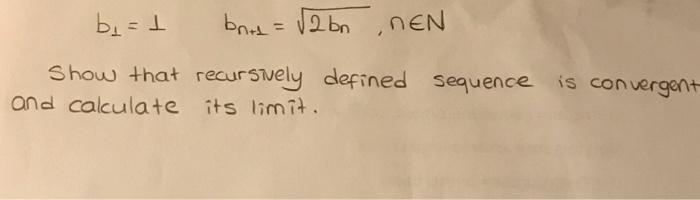 b₁ = 1 bₙ₊₁ = √2bₙ , n∈N
Show that recursively defined sequence is convergent
and calculate its limit.